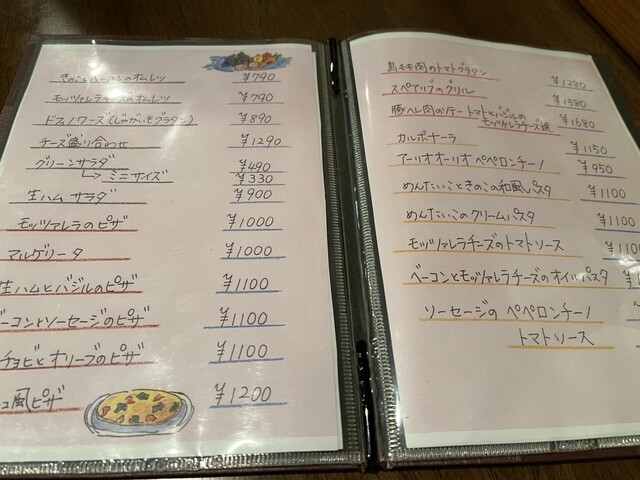 きのことベーコンのオムレツ ¥790
モッツァレラチーズのオムレツ ¥790
ドフィノワーズ(じゃがいもグラタン) ¥890
チーズ盛り合わせ ¥1290
グリーンサラダ ¥490
ミニサイズ ¥330
生ハム サラダ ¥900
モッツァレラのピザ ¥1000
マルゲリータ ¥1000
生ハムとバジルのピザ ¥1100
ーコンとソーセージのピザ ¥1100
チョビとオリーブのピザ ¥1100
風ピザ ¥1200
鳥もも肉のトマトグラタン ¥1280
スペアリブのグリル ¥1580
豚ヒレ肉のソテー トマトとバジルの
モッツァレラチーズ焼 ¥1680
カルボナーラ ¥1150
アーリオオーリオ ペペロンチーノ ¥950
めんたいこときのこの和風パスタ ¥1100
めんたいこのクリームパスタ ¥1100
モッツァレラチーズのトマトソース ¥110
ベーコンとモッツァレラチーズのオイルパスタ
ソーセージの ペペロンチーノ
トマトソース